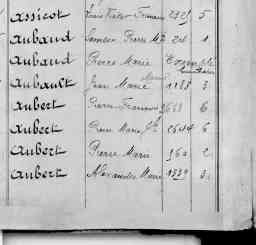 Assicot Jean Victor Francois 2325 5
Aubaud Pierre Me 221 1
Aubaud Pierre Marie
Aubault Jean Marie 1188 3
Aubert Pierre Francois 2668 6
Aubert Pierre Marie 2614 6
Aubert Pierre Marie 960 2
Aubert Alexandre Marie 1339 3